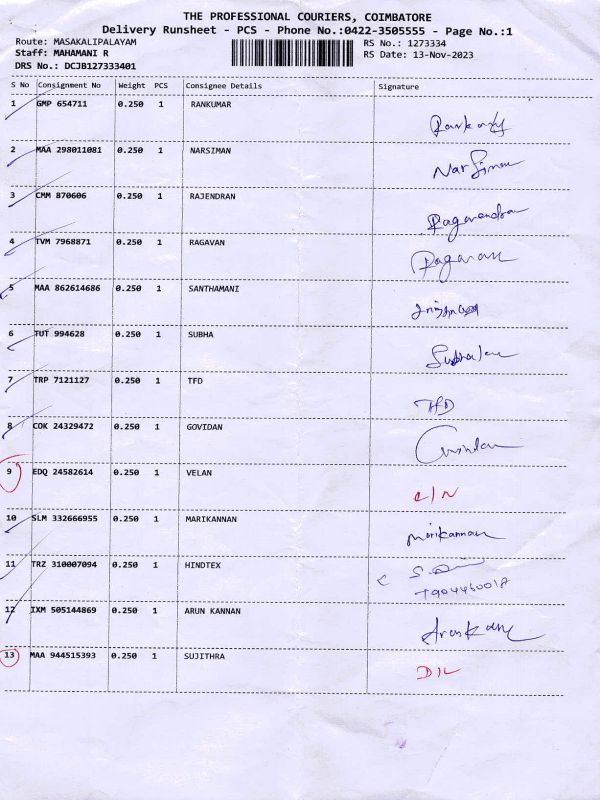 THE PROFESSIONAL COURIERS, COIMBATORE
Delivery Runsheet - PCS - Phone No.:0422-3505555 - Page No.:1
Route: MASAKALIPALAYAM RS No.: 1273334
Staff: MAHAMANI R RS Date: 13-Nov-2023
DRS No.: DCJB127333401
S No Consignment No Weight PCS Consignee Details Signature
1 GMP 654711 0.250 1 RANKUMAR
2 MAA 298011081 0.250 1 NARSIMAN
Narsiman
3 CMM 870606 0.250 1 RAJENDRAN
4 TVM 7968871 0.250 1 RAGAVAN
Ragavan
5 MAA 862614686 0.250 1 SANTHAMANI
6 TUT 994628 0.250 1 SUBHA
7 TRP 7121127 0.250 1 TFD
TFD
8 COK 24329472 0.250 1 GOVIDAN
9 EDQ 24582614 0.250 1 VELAN
C/N
10 SLM 332666955 0.250 1 MARIKANNAN
Marikannan
11 TRZ 310007094 0.250 1 HINDTEX
12 IXM 505144869 0.250 1 ARUN KANNAN
13 MAA 944515393 0.250 1 SUJITHRA
D/L